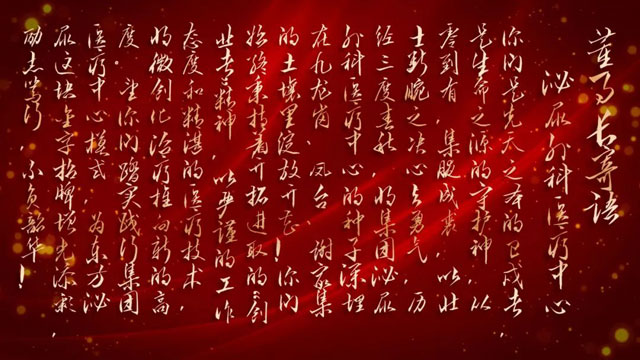 董事长寄语
泌尿外科医疗中心
你们是先天之本的卫戍者，
是生命之源的守护神，从
零到有，集腋成裘，以壮
士断腕之决心与勇气，历
经三度春秋，将集团泌尿
外科医疗中心的种子深埋
在九龙岗、凤台、谢家集
的土壤里绽放开花！你们
始终秉持着开拓进取的创
业者精神，以严谨的工作
态度和精湛的医疗技术，
将微创化治疗推向新的高
度。望你们踏实践行集团
医疗中心模式，为东方泌
尿这块金字招牌增光添彩，
励志笃行，不负韶华！